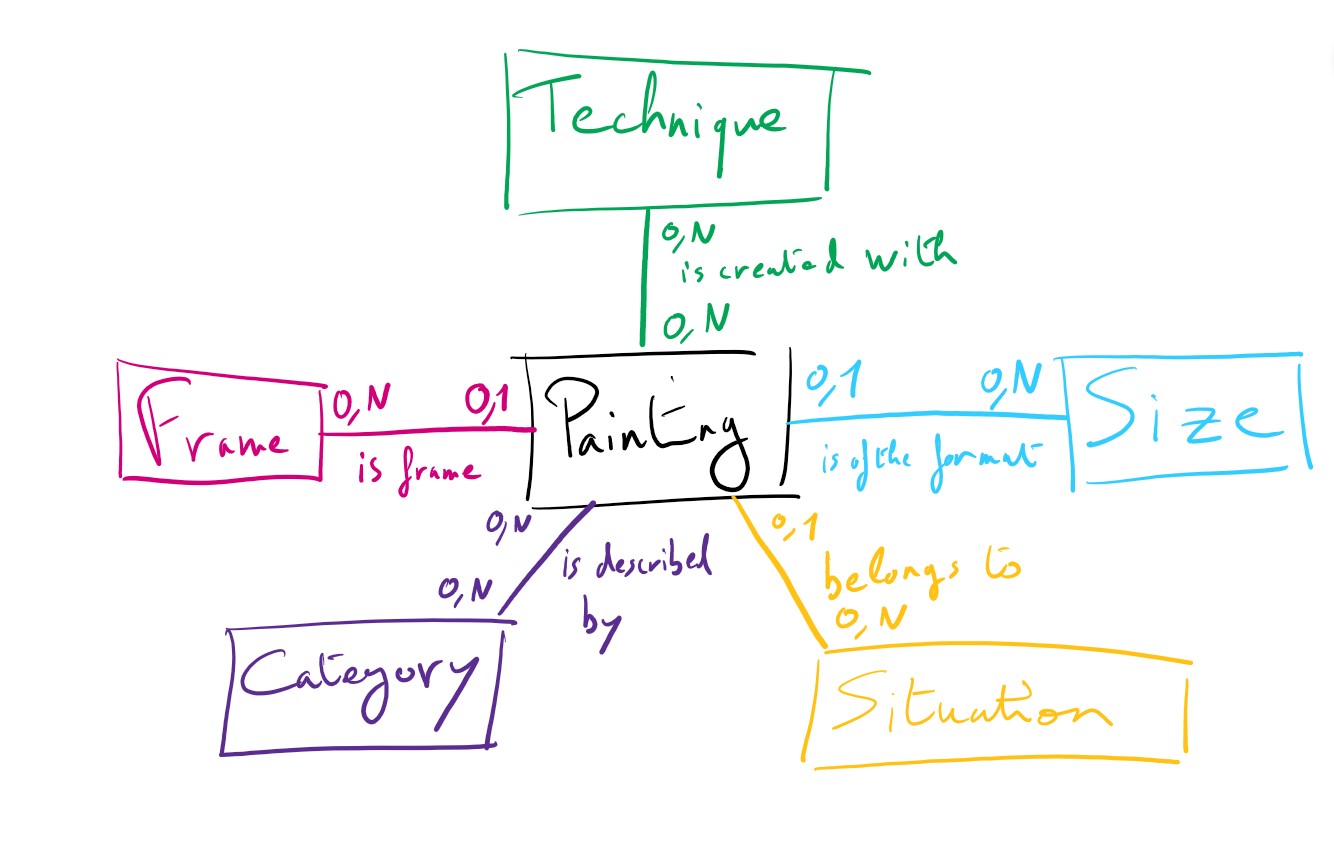 Technique
0,N
is created with
0,N
Frame
0,N
0,1
is frame
Painting
0,1
0,N
is of the format
Size
0,N
is described
by
0,N
Category
0,1
belongs to
0,N
Situation